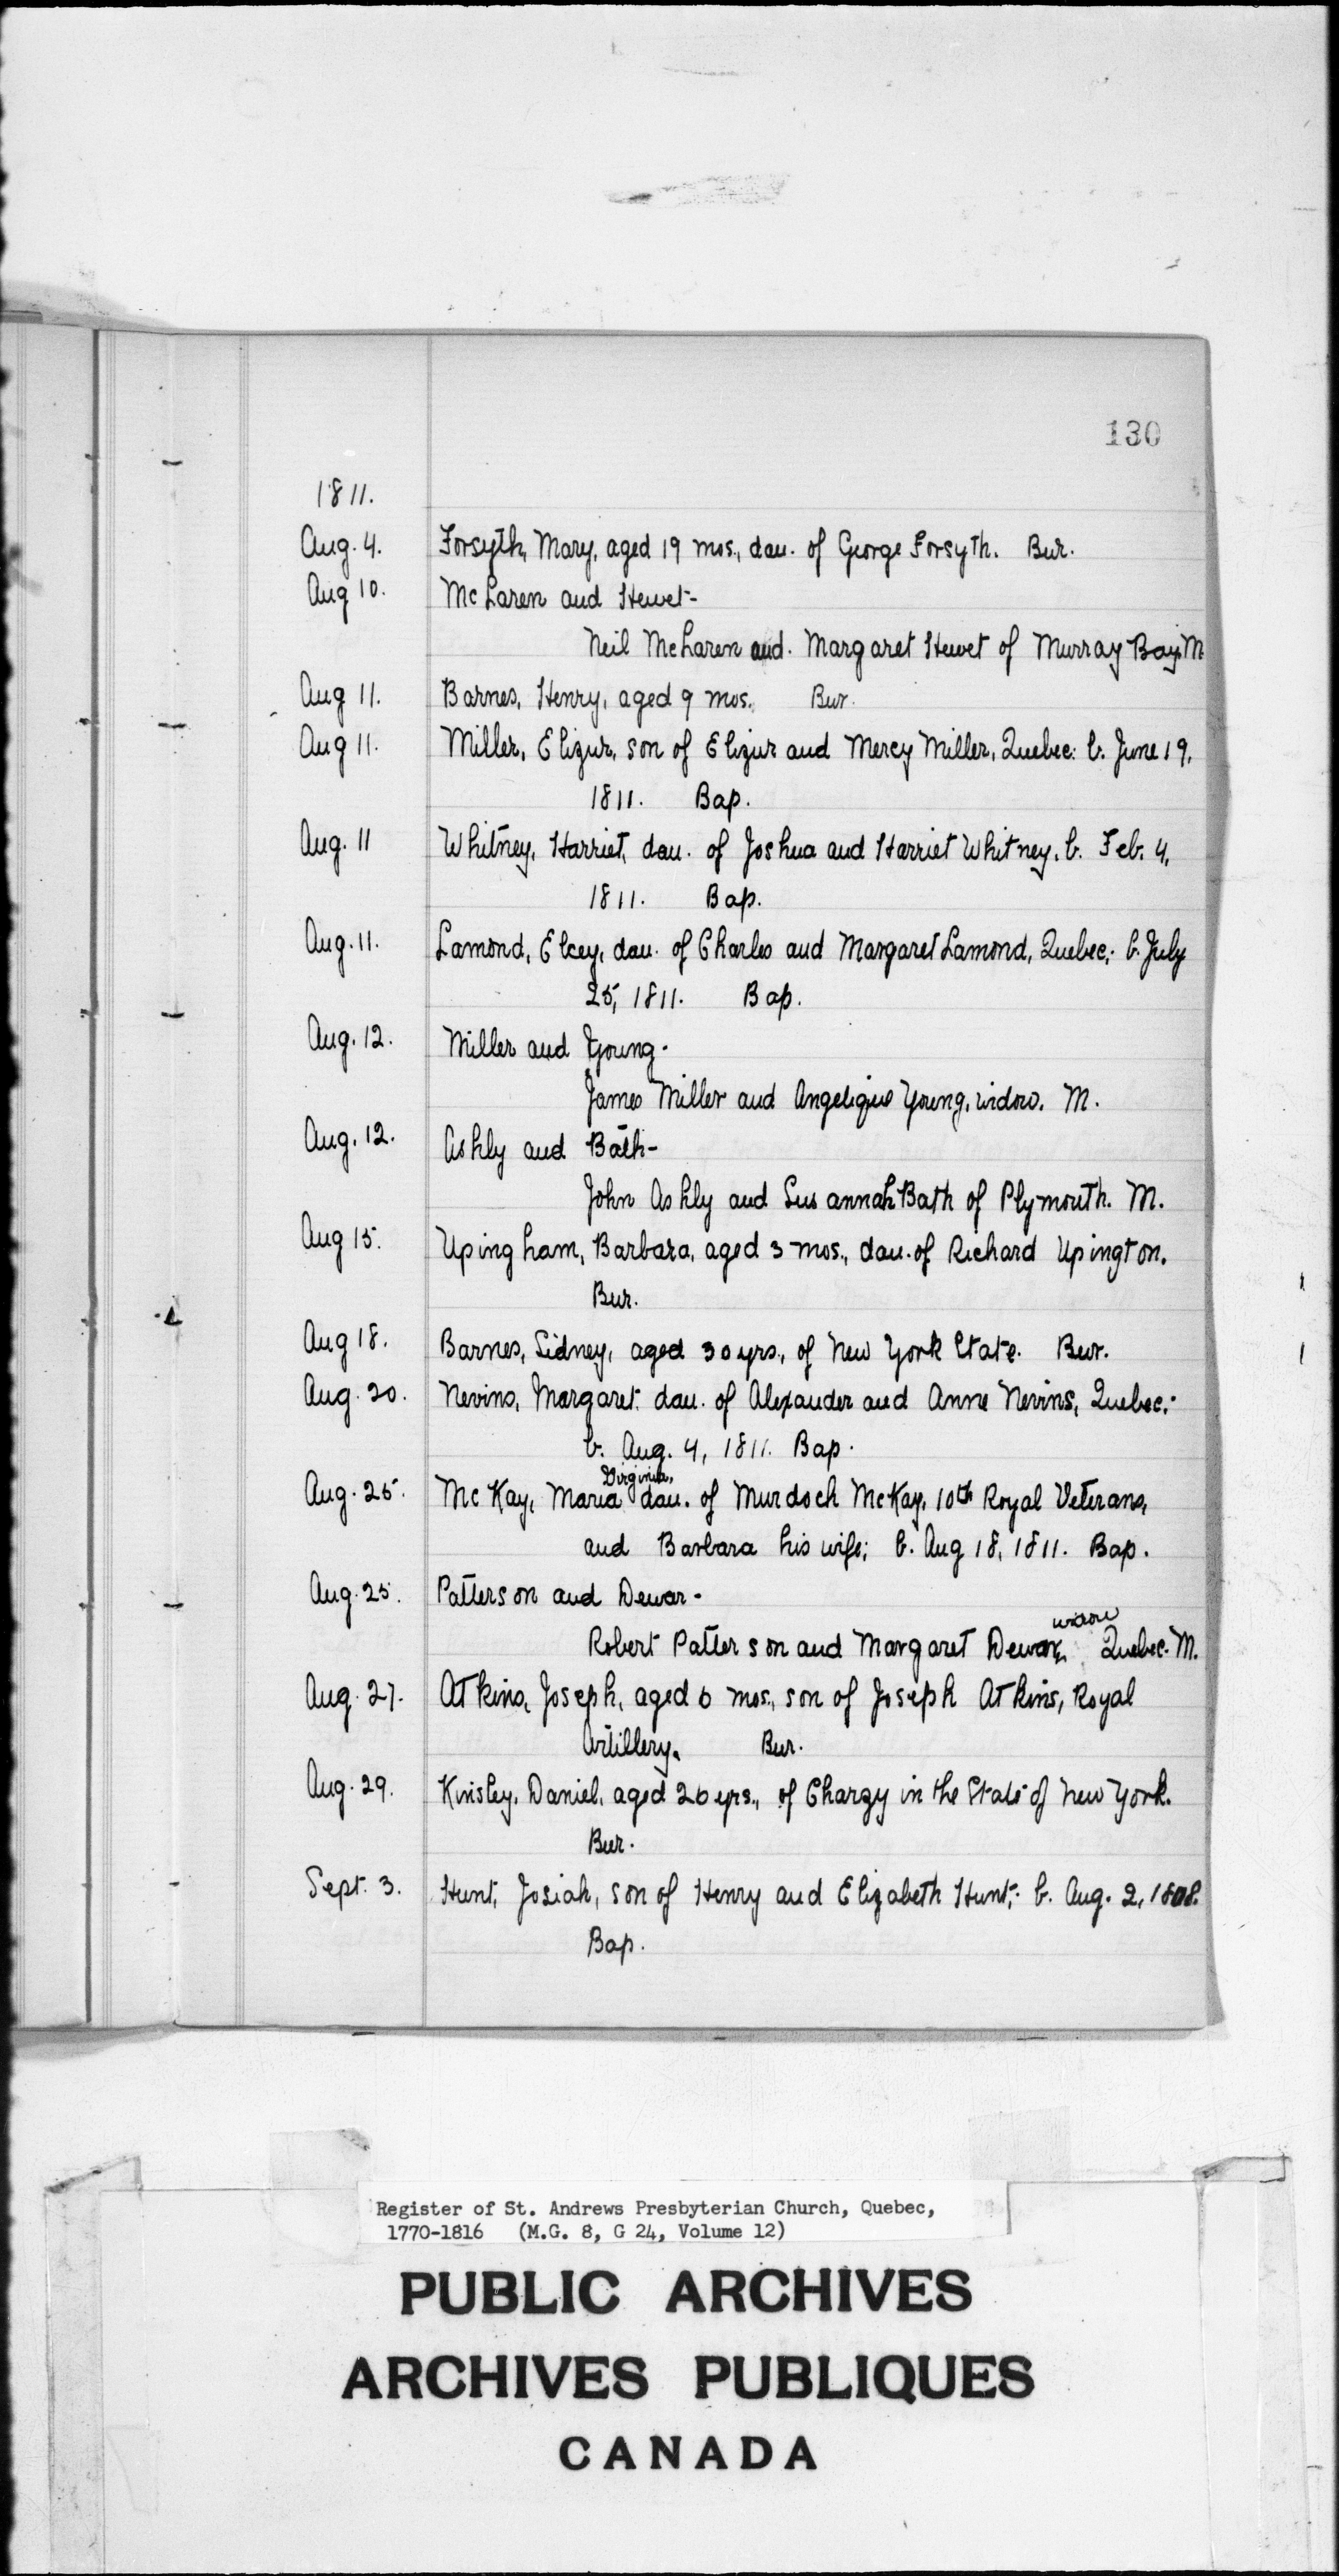 130
1811.
Aug. 4. Forsyth, Mary, aged 19 mos., dau. of George Forsyth. Bur.
Aug 10. McLaren and Hewet-
Neil McLaren and. Margaret Hewet of Murray Bay. M
Aug 11. Barnes, Henry, aged 9 mos. Bur.
Aug 11. Miller, Elizur, son of Elizur and Mercy Miller, Quebec: b. June 19,
1811. Bap.
Aug. 11 Whitney, Harriet, dau. of Joshua and Harriet Whitney, b. Feb. 4,
1811. Bap.
Aug. 11. Lamond, Elcey, dau. of Charles and Margaret Lamond, Quebec; b. July
25, 1811. Bap.
Aug. 12. Miller and Young-
James Miller and Angelique Young, widow. M.
Aug. 12. Ashly and Bath-
John Ashly and Susannah Bath of Plymouth. M.
Aug 15. Upingham, Barbara, aged 3 mos., dau. of Richard Upington.
Bur.
Aug 18. Barnes, Sidney, aged 30 yrs., of New York State. Bur.
Aug. 20. Nevins, Margaret, dau. of Alexander and Anne Nevins, Quebec;
b. Aug. 4, 1811. Bap.
Virginia,
Aug. 25. McKay, Maria dau. of Murdoch McKay, 10th Royal Veterans,
and Barbara his wife; b. Aug 18, 1811. Bap.
Aug. 25. Patterson and Dewar-
widow
Robert Patterson and Margaret Dewar, Quebec. M.
Aug. 27. Atkins, Joseph, aged 6 mos., son of Joseph Atkins, Royal
Artillery. Bur.
Aug. 29. Kinsley, Daniel, aged 26 yrs., of Chargy in the State of New York.
Bur.
Sept. 3. Hunt, Josiah, son of Henry and Elizabeth Hunt; b. Aug. 2, 1808.
Bap.
Register of St. Andrews Presbyterian Church, Quebec,
1770-1816 (M.G. 8, G 24, Volume 12)
PUBLIC ARCHIVES
ARCHIVES PUBLIQUES
CANADA